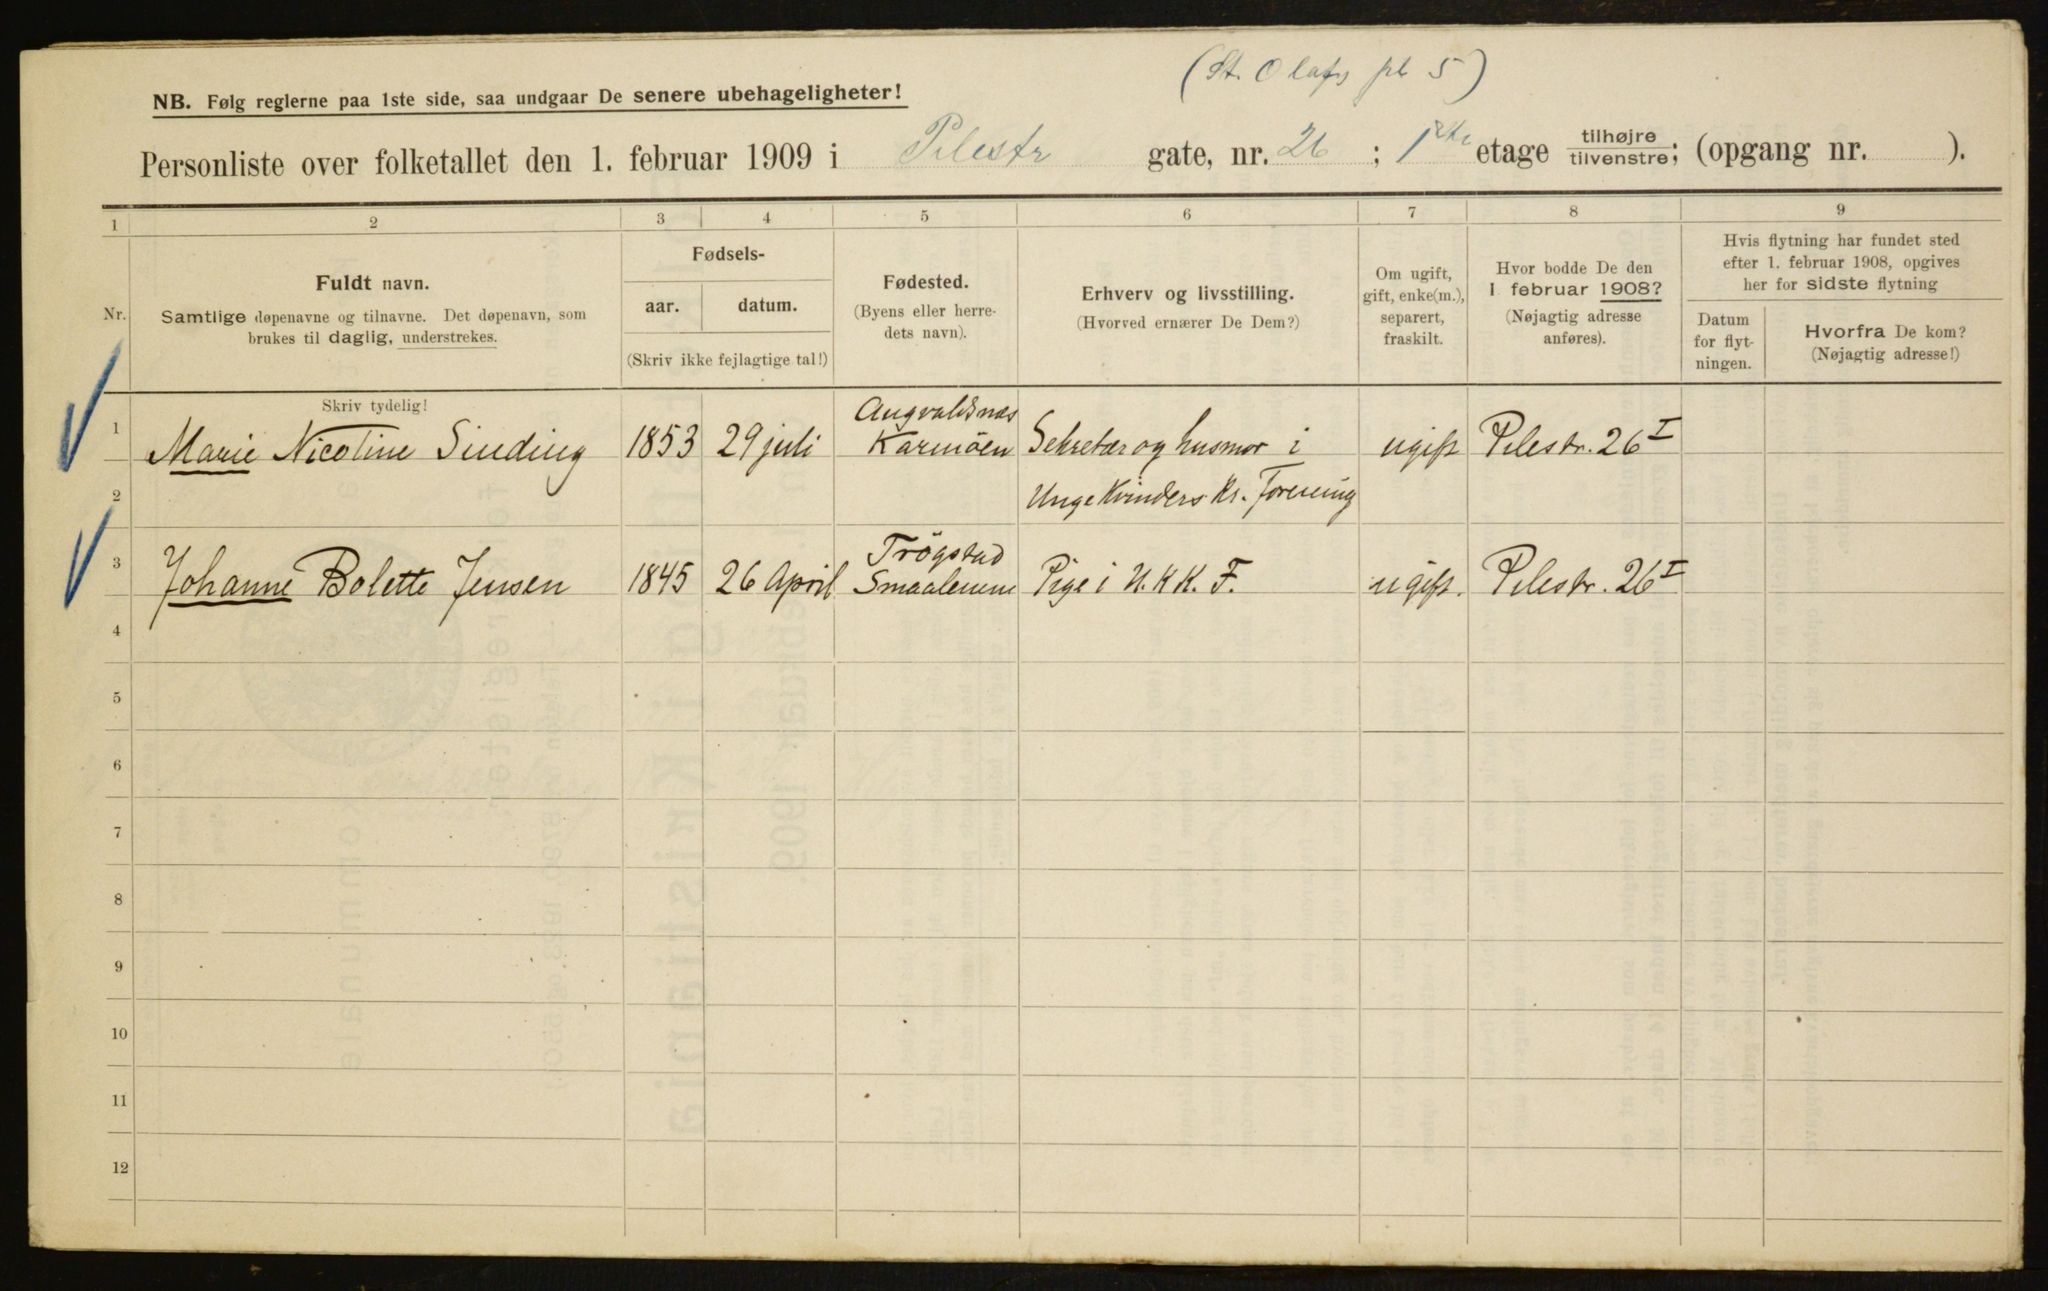 (St. Olafs pl 5)
NB. Følg reglerne paa 1ste side, saa undgaar De senere ubehageligheter!
Personliste over folketallet den 1. februar 1909 i Pilestr gate, nr. 26 ; 1ste etage tilhøjre / tilvenstre; (opgang nr. ).
1 2 3 4 5 6 7 8 9
Nr.
Fuldt navn.
Samtlige døpenavne og tilnavne. Det døpenavn, som
brukes til daglig, understrekes.
Skriv tydelig!
Fødsels-
aar. datum.
(Skriv ikke fejlagtige tal!)
Fødested.
(Byens eller herre-
dets navn).
Erhverv og livsstilling.
(Hvorved ernærer De Dem?)
Om ugift,
gift, enke(m.),
separert,
fraskilt.
Hvor bodde De den
1 februar 1908?
(Nøjagtig adresse
anføres).
Hvis flytning har fundet sted
efter 1. februar 1908, opgives
her for sidste flytning
Datum
for flyt-
ningen.
Hvorfra De kom?
(Nøjagtig adresse!)
Augvaldsnæs
1 Marie Nicoline Sinding 1853 29 juli Karmöen Sekretær og husmor i ugift Pilestr. 26 I
2 Unge Kvinders Kr. Forening
Trögstad
3 Johanne Bolette Jensen 1845 26 April Smaalenene Pige i U. K K. F. ugift. Pilestr. 26 I
4
5
6
7
8
9
10
11
12